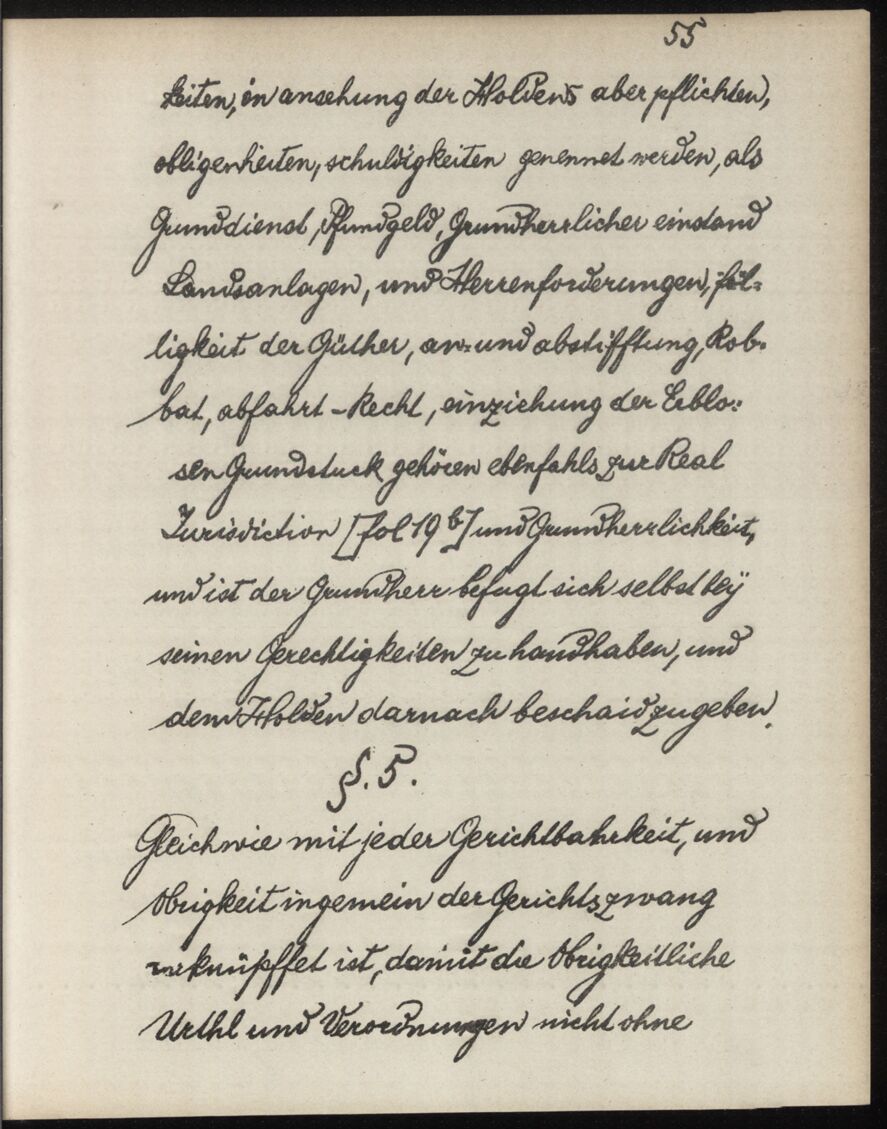 55
keiten, in ansehung der Holdens aber pflichten,
obligenheiten, schuldigkeiten genennet werden, als
Grunddienst, Pfundgeld, Grundherrlicher einstand
Landsanlagen, und Herrenforderungen, föl-
ligkeit der Güther, an- und abstifftung, Rob-
bat, abfahrt-Recht, einziehung der Erblo-
sen Grundstuck gehören ebenfahls zur Real
Jurisdiction [fol 19 b] und Grundherrlichkeit,
und ist der Grundherr befugt sich selbst beÿ
seinen Gerechtigkeiten zu handhaben, und
dem Holden darnach beschaid zugeben.
§. 5.
Gleichwie mit jeder Gerichtbahrkeit, und
Obrigkeit ingemein der Gerichtszwang
verknüpffet ist, damit die Obrigkeitliche
Urthl und Verordnungen nicht ohne